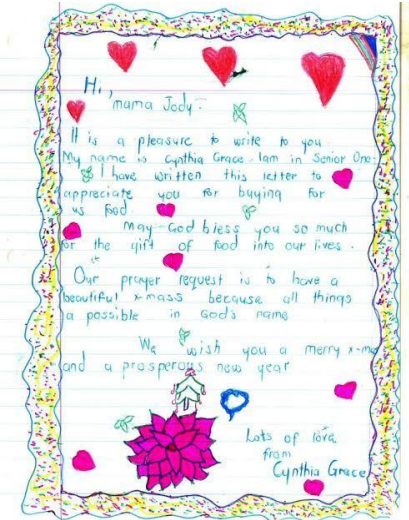 Hi,
mama Jody:-
It is a pleasure to write to you
My name is Cynthia Grace. Iam in Senior One.
I have written this letter to
appreciate you for buying for
us food.
May God bless you so much
for the gift of food into our lives.
Our prayer request is to have a
beautiful x-mass because all things
a possible in God's name
We wish you a merry x-ma
and a prosperous new year
Lots of love
from
Cynthia Grace